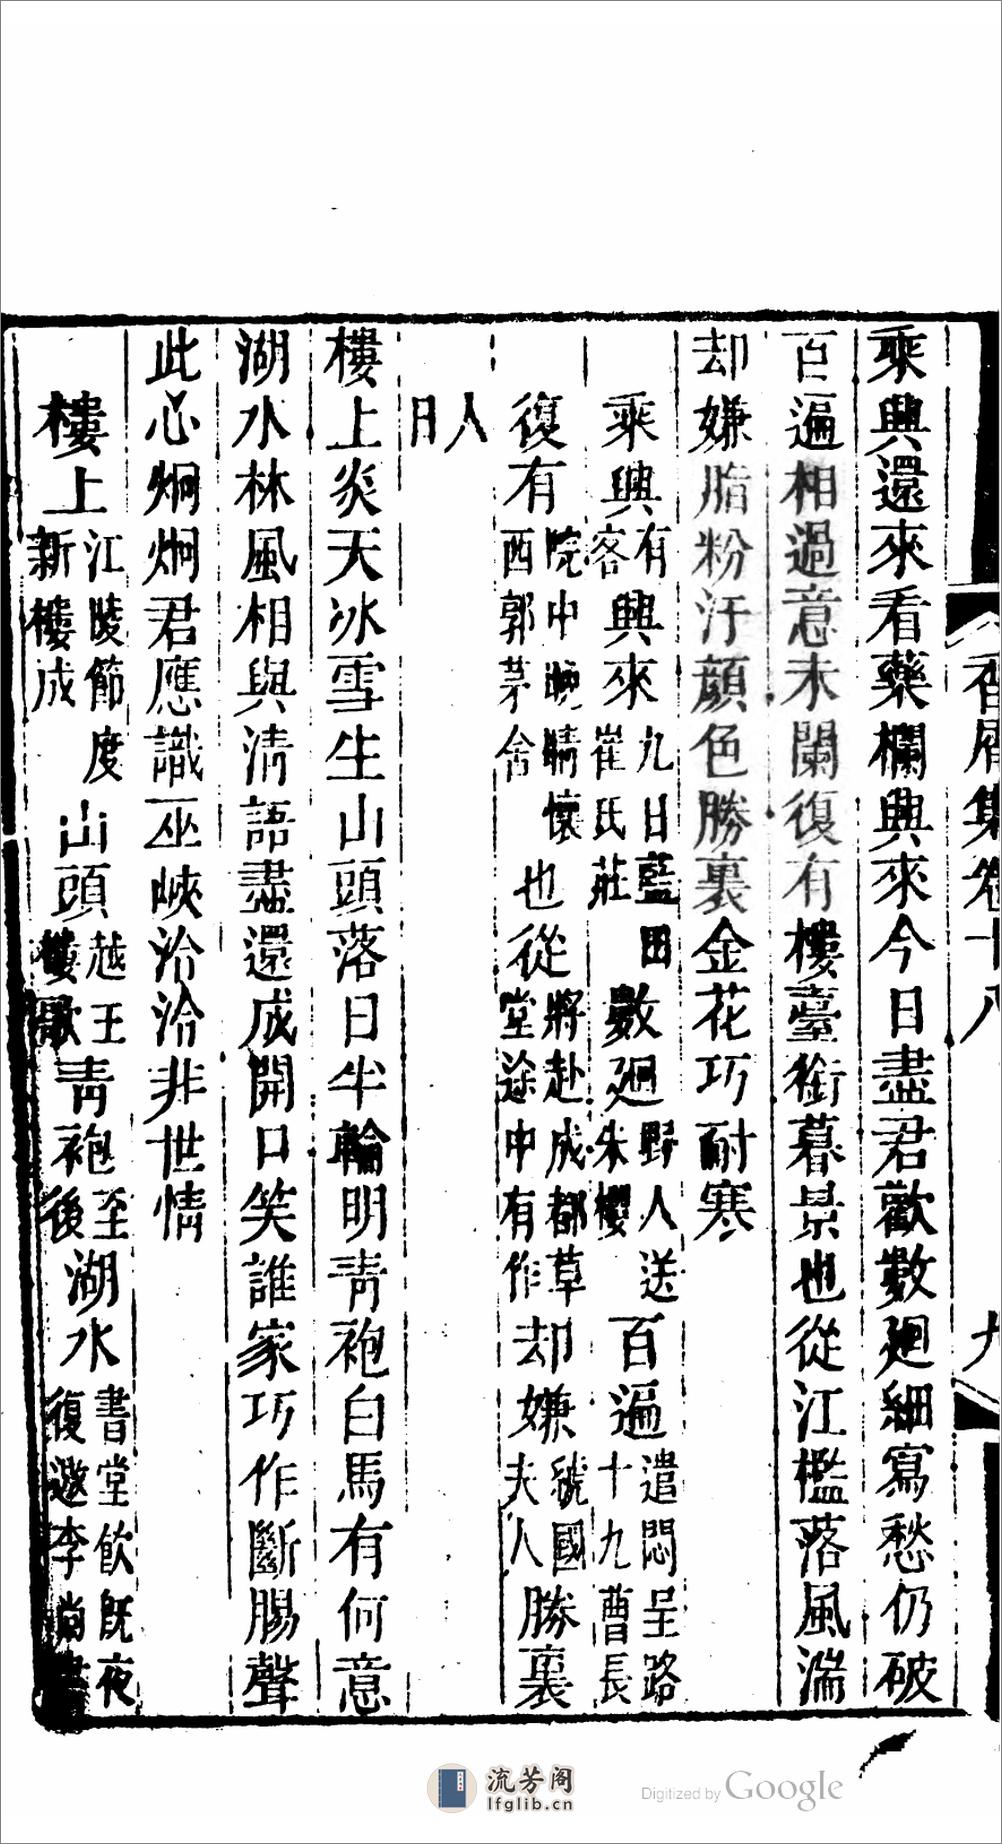 香屑集卷十八
九
乘興還來看藥欄興來今日盡君歡數廻細寫愁仍破
百遍相過意未闌復有樓臺銜暮景也從江檻落風湍
却嫌脂粉汙顏色勝裏金花巧耐寒
乘興有客興來九日藍田崔氏莊數廻野人送朱櫻百遍遣悶呈路十九曹長
復有院中晚晴懷西郭茅舍也從將赴成都草堂途中有作却嫌虢國夫人勝裏
人日
樓上炎天冰雪生山頭落日半輪明青袍白馬有何意
湖水林風相與清語盡還成開口笑誰家巧作斷腸聲
此心炯炯君應識巫峽泠泠非世情
樓上江陵節度新樓成山頭越王樓歌青袍至後湖水書堂飲既夜復邀李尚書
流芳阁
lfglib.cn
Digitized by Google